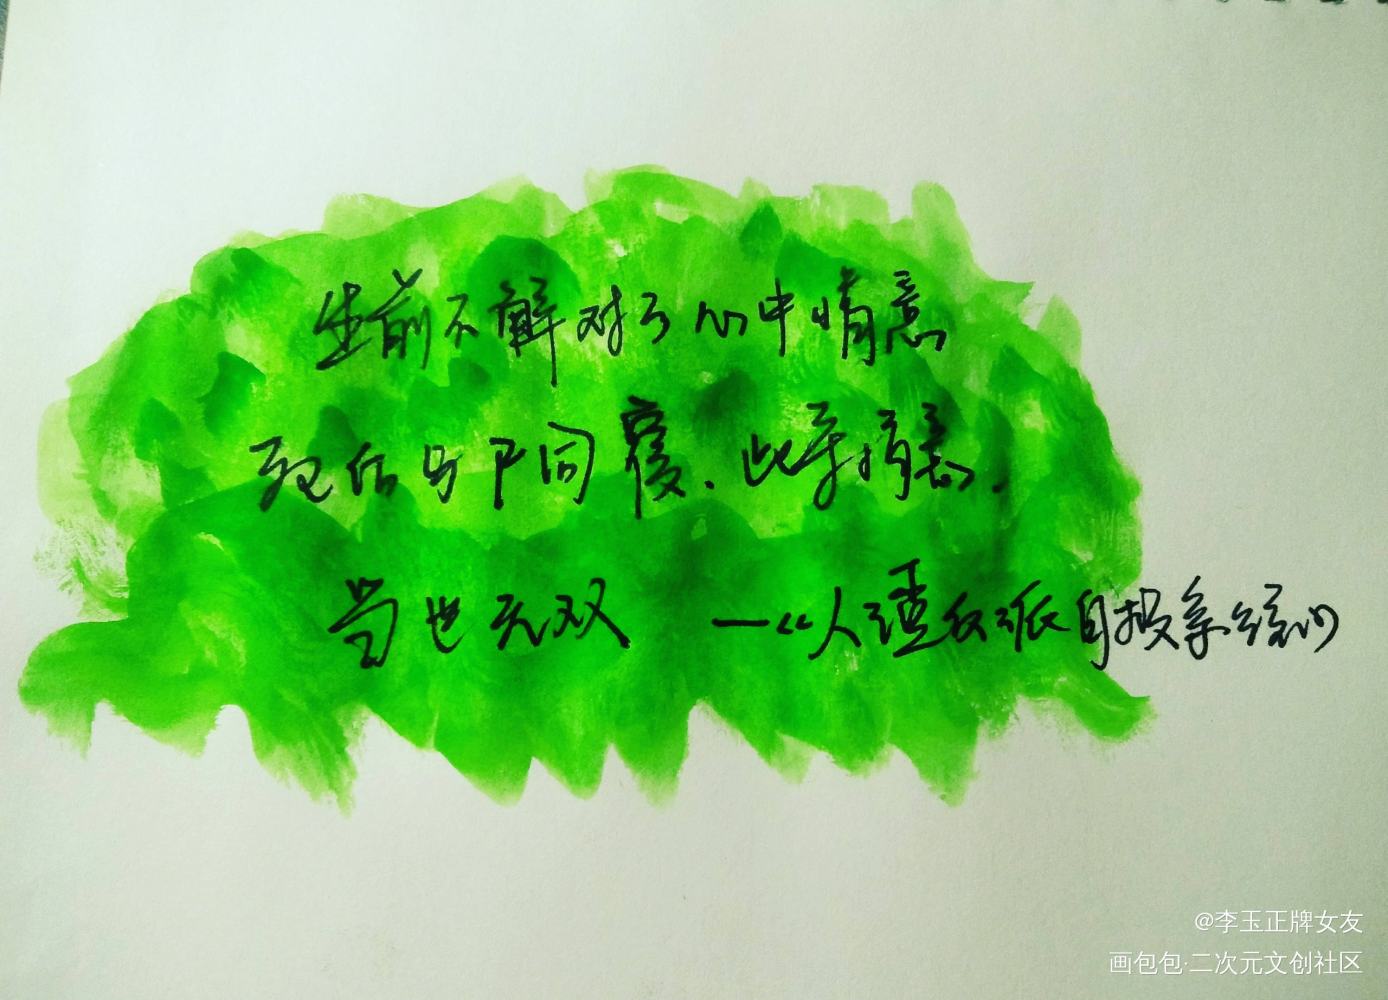 生前不解对方心中情意
死后与尸同寝。此等情意。
当世无双 —《人渣反派自救系统》
@李玉正牌女友
画包包·二次元文创社区